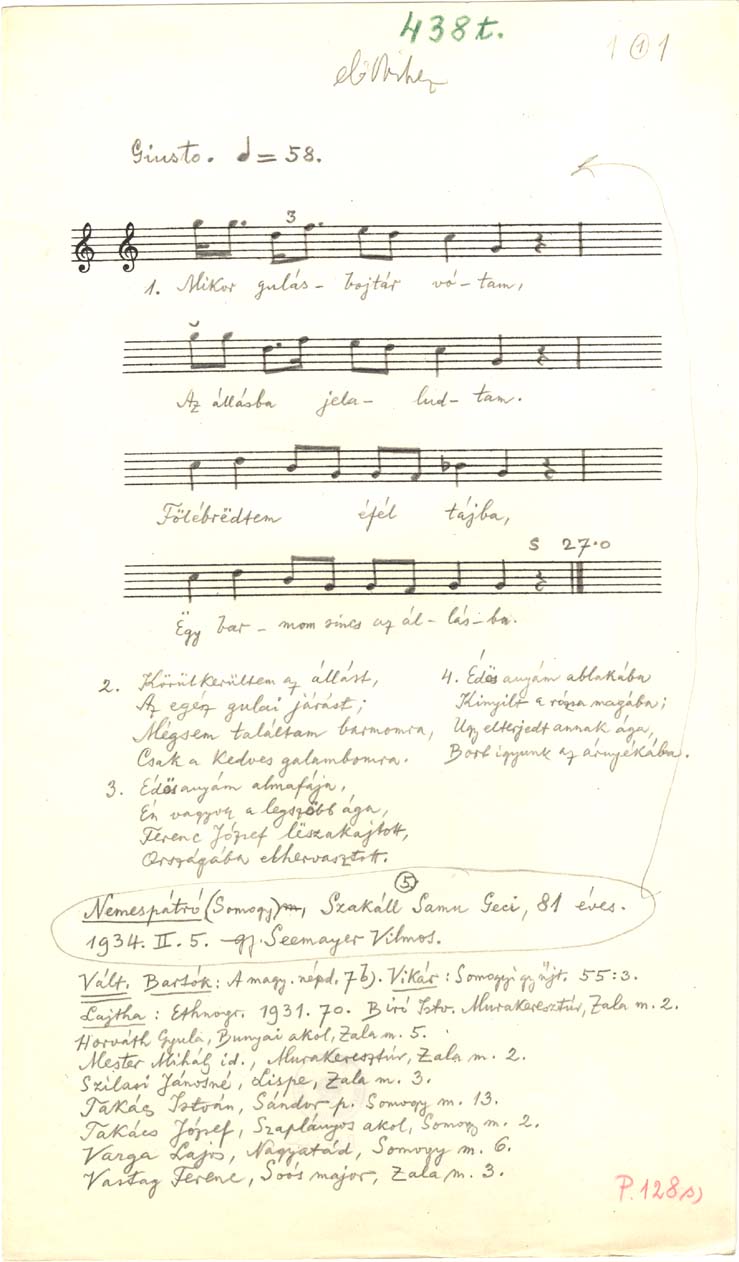 438t.
1 ① 1
Giusto. = 58.
3
1. Mikor gulás- bojtár vó-tam,
Az állásba jela- lud-tam.
Fölébrëdtem éfél tájba,
S 27.0
Ëgy bar- mom sincs az ál- lás-ba.
2. Körülkerültem az állást,
Az egész gulai járást;
Mégsem találtam barmomra,
Csak a kedves galambomra.
3. Édösanyám almafája,
Én vagyok a legszöbb ága,
Ferenc József lëszakajtott,
Országába elhervasztott.
4. Édösanyám ablakába
Kinyilt a rózsa magába;
Ugy elterjedt annak ága,
Bort igyunk az árnyékába.
⑤
Nemespátró (Somogy) m, Szakáll Samu Geci, 81 éves.
1934. II. 5. gy. Seemayer Vilmos.
Vált. Bartók: A magy. népd. 7b). Vikár: Somogyi gyűjt. 55:3.
Lajtha: Ethnogr. 1931. 70. Biró Istv. Murakeresztúr, Zala m. 2.
Horváth Gyula, Bunyai akol, Zala m. 5.
Mester Mihály id., Murakeresztúr, Zala m. 2.
Szilasi Jánosné, Lispe, Zala m. 3.
Takács István, Sándor p. Somogy m. 13.
Takács József, Szaplányos akol, Somogy m. 2.
Varga Lajos, Nagyatád, Somogy m. 6.
Vastag Ferenc, Soós major, Zala m. 3.
P. 128s)